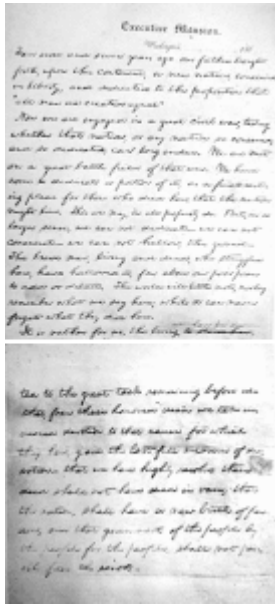 Executive Mansion,
Washington, 186
Four score and seven years ago our fathers brought
forth, upon this continent, a new nation, conceived
in liberty, and dedicated to the proposition that
"all men are created equal"
Now we are engaged in a great civil war, testing
whether that nation, or any nation so conceived,
and so dedicated, can long endure. We are met
on a great battle field of that war. We have
come to dedicate a portion of it, as a final rest-
ing place for those who died here, that the nation
might live. This we may, in all propriety do. But, in a
larger sense, we can not dedicate we can not
consecrate we can not hallow, this ground
The brave men, living and dead, who struggled
here, have hallowed it, far above our poor power
to add or detract. The world will little note, nor long
remember what we say here; while it can never
forget what they did here.
It is rather for us, the living to
ted to the great task remaining before us
that, from these honored dead we take in
creased devotion to that cause for which
they here, gave the last full measure of de
votion that we here highly resolve these
dead shall not have died in vain; that
the nation, shall have a new birth of free
dom, and that government of the people by
the people for the people, shall not per
ish from the earth.